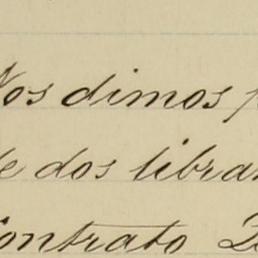 Nos dimos p
de dos libran
Contrato